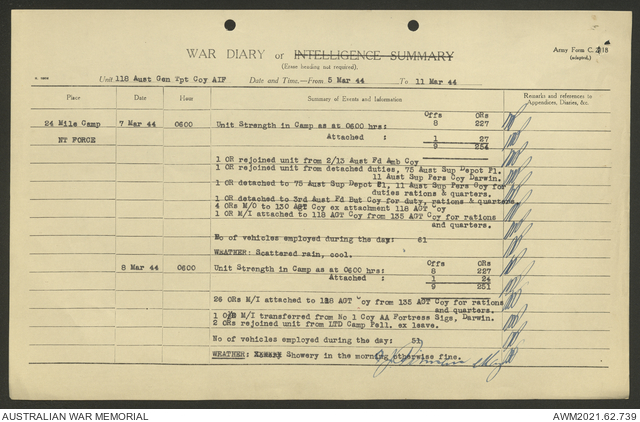 WAR DIARY or INTELLIGENCE SUMMARY
(Erase heading not required).
Army Form C.2118
(adapted.)
Unit 118 Aust Gen Tpt Coy AIF Date and Time.—From 5 Mar 44 To 11 Mar 44
Place Date Hour Summary of Events and Information Remarks and references to
Appendices, Diaries, &c.
Offs ORs
24 Mile Camp 7 Mar 44 0600 Unit Strength in Camp as at 0600 hrs: 8 227
Attached : 1 27
NT FORCE 9 254
1 OR rejoined unit from 2/13 Aust Fd Amb Coy
1 OR rejoined from detached duties, 75 Aust Sup Depot Pl.
11 Aust Sup Pers Coy Darwin.
1 OR detached to 75 Aust Sup Depot Pl, 11 Aust Sup Pers Coy for
duties rations & quarters.
1 OR detached to 3rd Aust Fd But Coy for duty, rations & quarters
4 ORs M/O to 130 AGT Coy ex attachment 118 AGT Coy
1 OR M/I attached to 118 AGT Coy from 135 AGT Coy for rations
and quarters.
No of vehicles employed during the day: 61
WEATHER: Scattered rain, cool.
Offs ORs
8 Mar 44 0600 Unit Strength in Camp as at 0600 hrs: 8 227
Attached : 1 24
9 251
26 ORs M/I attached to 118 AGT Coy from 135 AGT Coy for rations
and quarters.
1 OR M/I transferred from No 1 Coy AA Fortress Sigs, Darwin.
2 ORs rejoined unit from LTD Camp Pell. ex leave.
No of vehicles employed during the day: 51
WEATHER: Showery in the morning otherwise fine.
AUSTRALIAN WAR MEMORIAL AWM2021.62.739